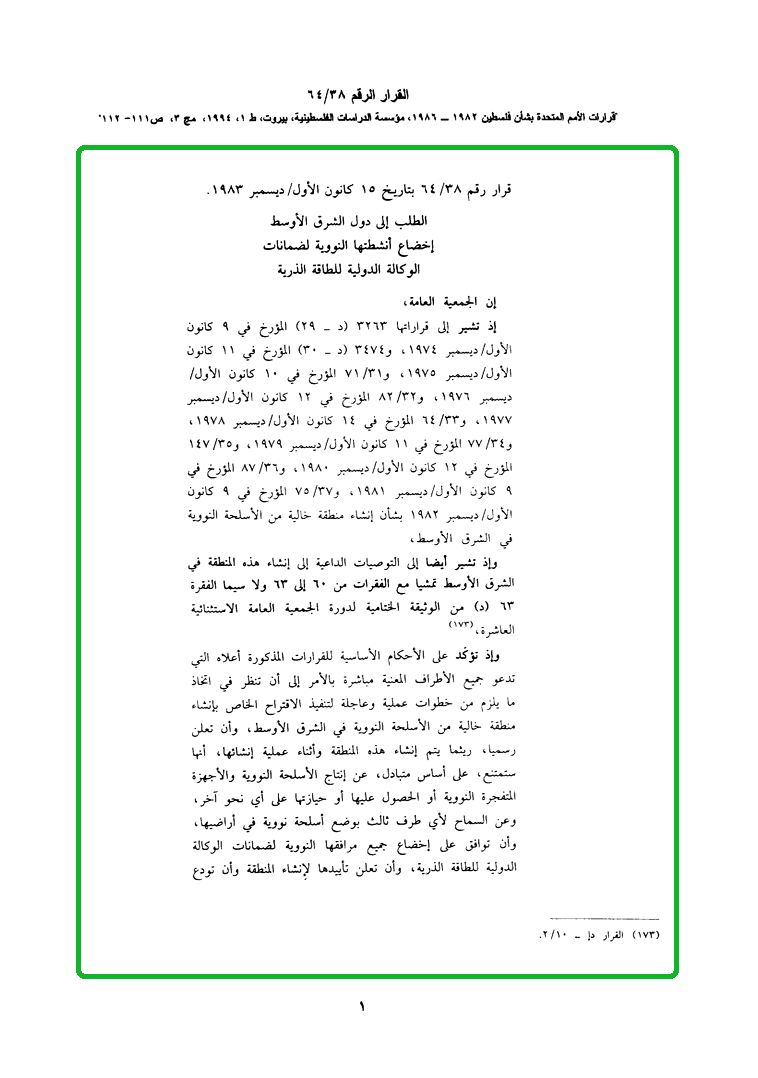 القرار الرقم ٦٤/٣٨
"قرارات الأمم المتحدة بشأن فلسطين ١٩٨٢ ــ ١٩٨٦، مؤسسة الدراسات الفلسطينية، بيروت، ط ١، ١٩٩٤، مج ٣، ص١١١- ١١٢"
قرار رقم ٦٤/٣٨ بتاريخ ١٥ كانون الأول/ديسمبر ١٩٨٣.
الطلب إلى دول الشرق الأوسط
إخضاع أنشطتها النووية لضمانات
الوكالة الدولية للطاقة الذرية
إن الجمعية العامة،
إذ تشير إلى قراراتها ٣٢٦٣ (د ــ ٢٩) المؤرخ في ٩ كانون
الأول/ديسمبر ١٩٧٤، و٣٤٧٤ (د ــ ٣٠) المؤرخ في ١١ كانون
الأول/ديسمبر ١٩٧٥، و٧١/٣١ المؤرخ في ١٠ كانون الأول/
ديسمبر ١٩٧٦، و٨٢/٣٢ المؤرخ في ١٢ كانون الأول/ديسمبر
١٩٧٧، و٦٤/٣٣ المؤرخ في ١٤ كانون الأول/ديسمبر ١٩٧٨،
و٧٧/٣٤ المؤرخ في ١١ كانون الأول/ديسمبر ١٩٧٩، و١٤٧/٣٥
المؤرخ في ١٢ كانون الأول/ديسمبر ١٩٨٠، و٨٧/٣٦ المؤرخ في
٩ كانون الأول/ديسمبر ١٩٨١، و٧٥/٣٧ المؤرخ في ٩ كانون
الأول/ديسمبر ١٩٨٢ بشأن إنشاء منطقة خالية من الأسلحة النووية
في الشرق الأوسط،
وإذ تشير أيضا إلى التوصيات الداعية إلى إنشاء هذه المنطقة في
الشرق الأوسط تمشيا مع الفقرات من ٦٠ إلى ٦٣ ولا سيما الفقرة
٦٣ (د) من الوثيقة الختامية لدورة الجمعية العامة الاستثنائية
العاشرة،(١٧٣)
وإذ تؤكّد على الأحكام الأساسية للقرارات المذكورة أعلاه التي
تدعو جميع الأطراف المعنية مباشرة بالأمر إلى أن تنظر في اتخاذ
ما يلزم من خطوات عملية وعاجلة لتنفيذ الاقتراح الخاص بإنشاء
منطقة خالية من الأسلحة النووية في الشرق الأوسط، وأن تعلن
رسميا، ريثما يتم إنشاء هذه المنطقة وأثناء عملية إنشائها، أنها
ستمتنع، على أساس متبادل، عن إنتاج الأسلحة النووية والأجهزة
المتفجرة النووية أو الحصول عليها أو حيازتها على أي نحو آخر،
وعن السماح لأي طرف ثالث بوضع أسلحة نووية في أراضيها،
وأن توافق على إخضاع جميع مرافقها النووية لضمانات الوكالة
الدولية للطاقة الذرية، وأن تعلن تأييدها لإنشاء المنطقة وأن تودع
(١٧٣) القرار دإ ــ ٢/١٠.
١